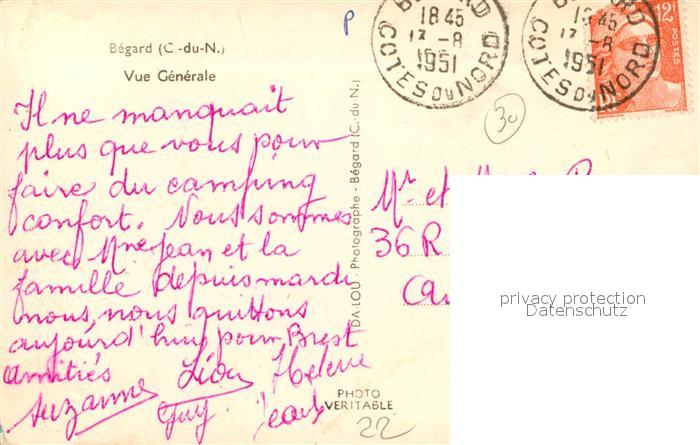 Bégard (C.-du-N.)
Vue Générale
Il ne manquait
plus que vous pour
faire du camping
confort. Nous sommes
avec Mme Jean et la
famille depuis mardi
nous, nous quittons
aujourd'hui pour Brest
Amitiés
Suzanne Léon Hélène
Guy. Jean
DA-LOU - Photographe - Bégard (C. du N.)
PHOTO
VERITABLE
22
P
18 45
17 -8
1951
COTES DU NORD
18 45
17 -8
1951
COTES DU NORD
12F
POSTES
30
Mr et
36 R
privacy protection
Datenschutz